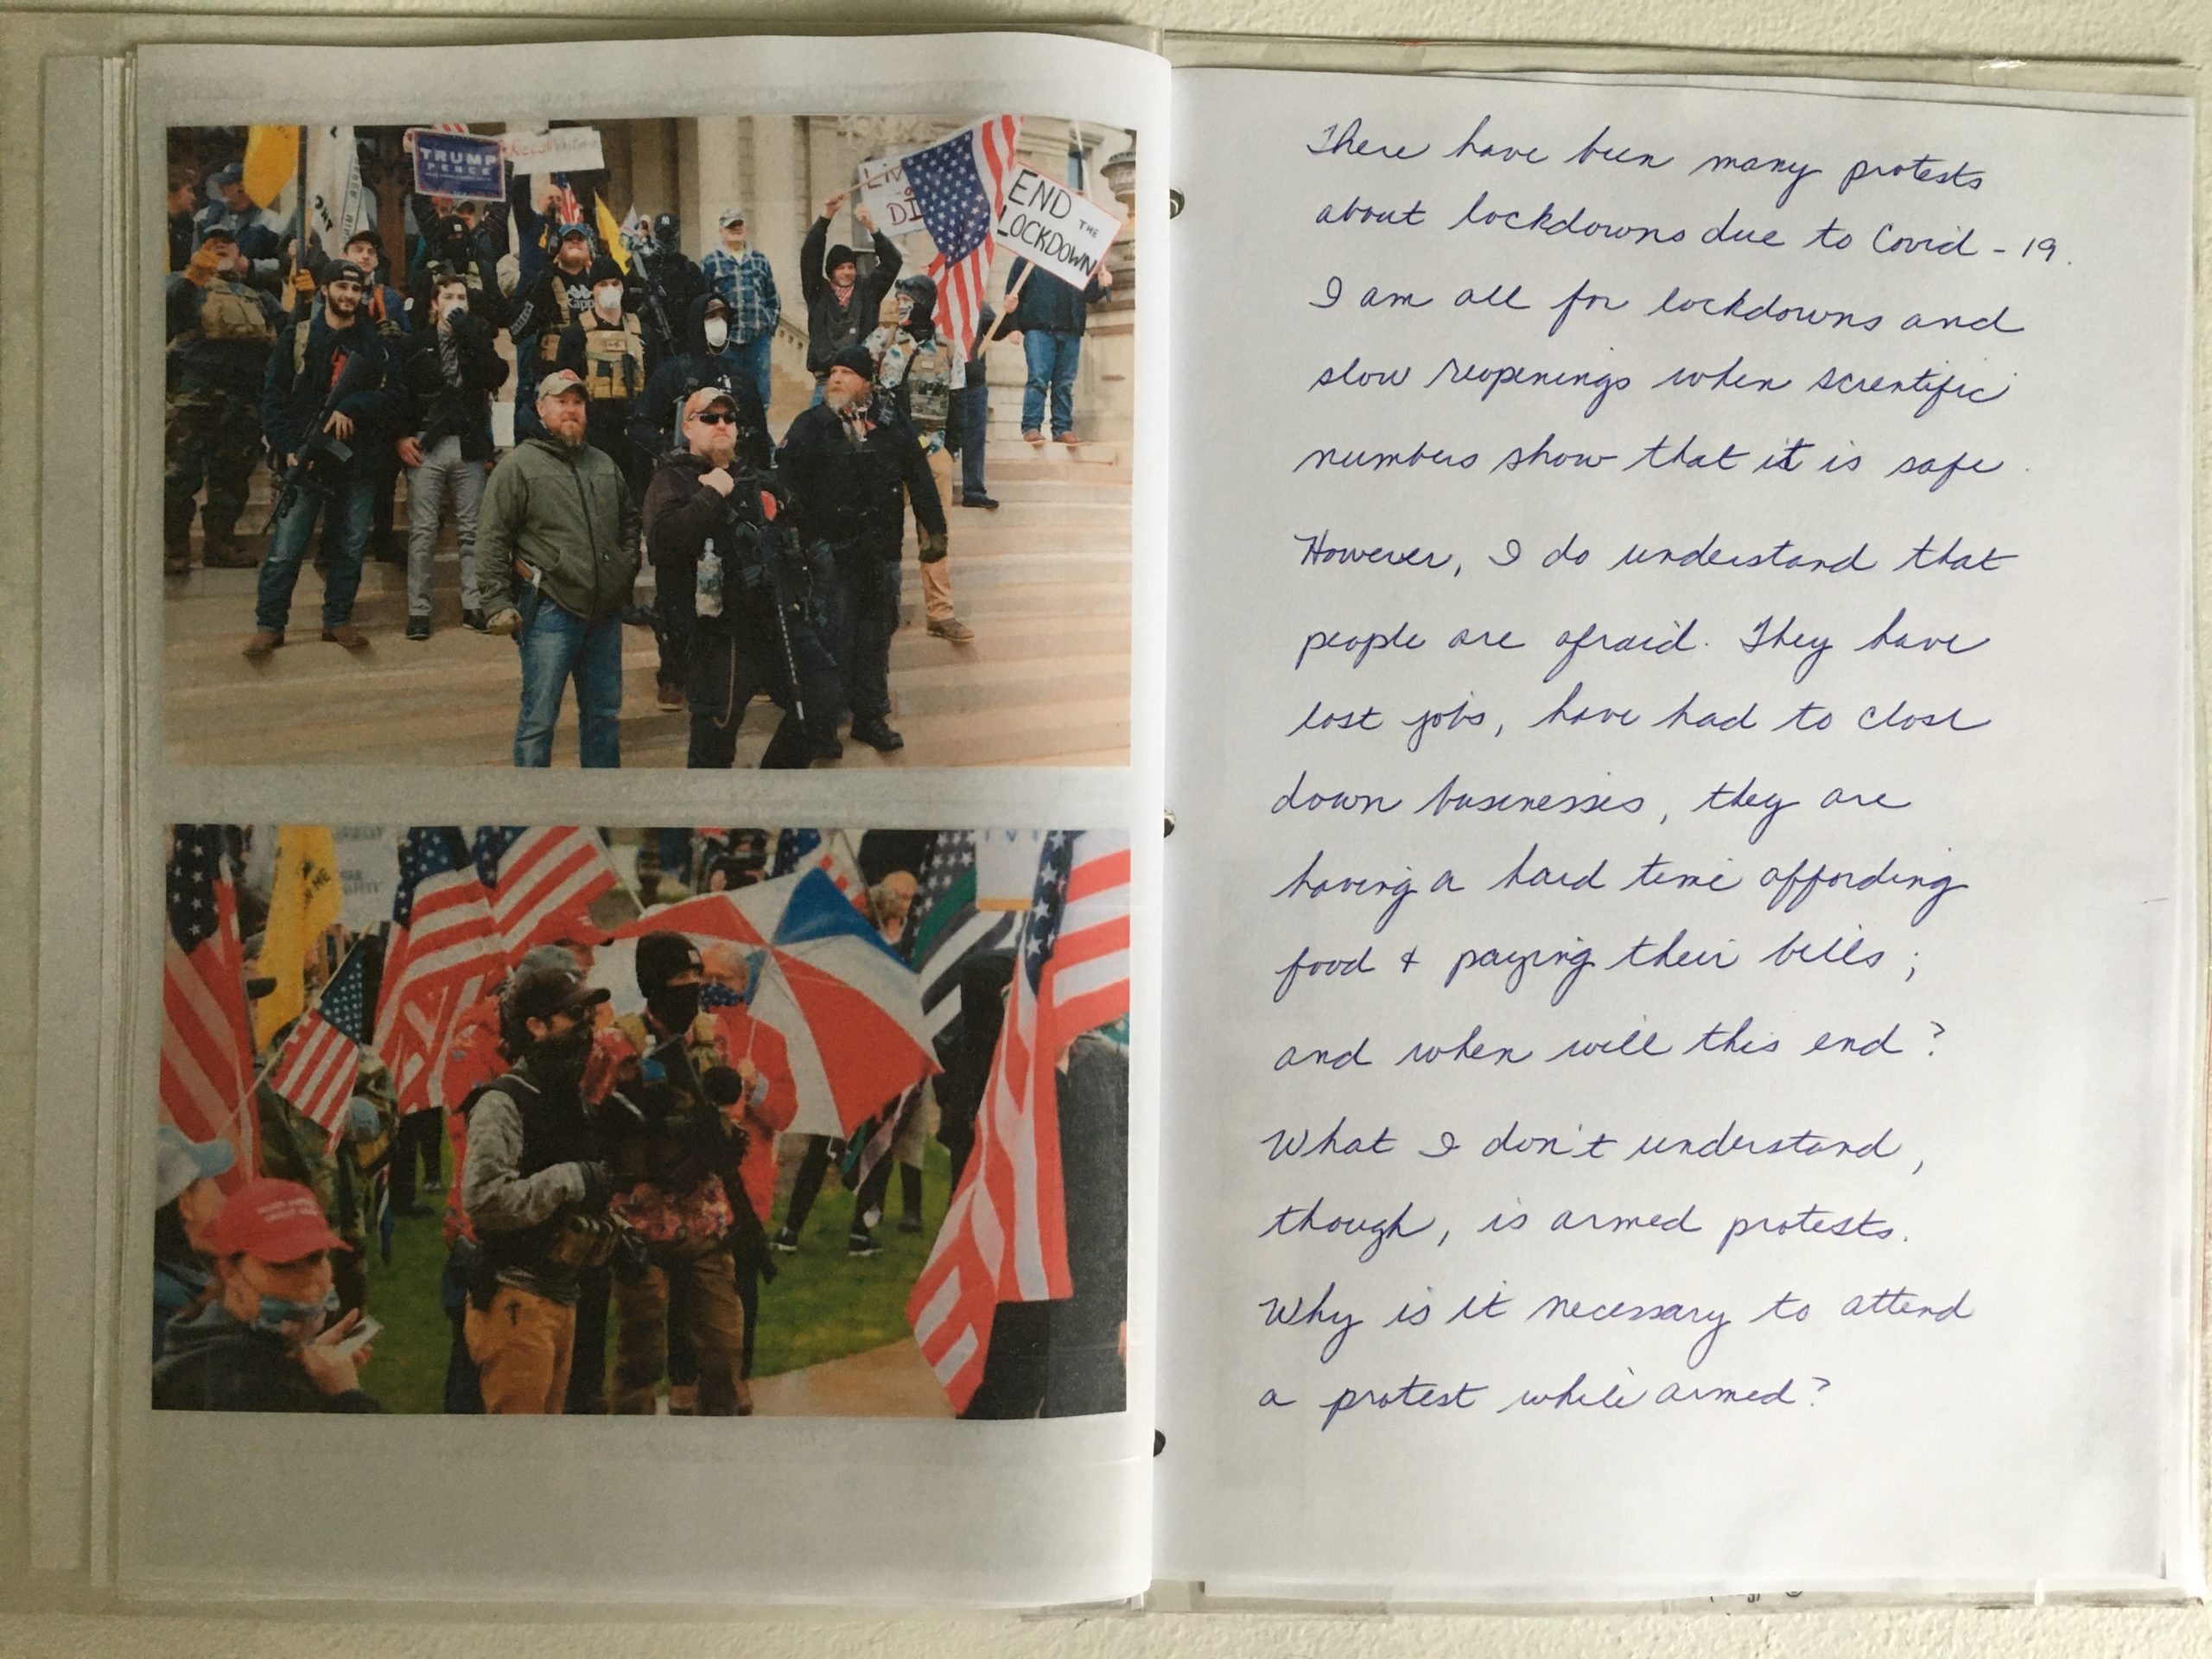 TRUMP
PENCE
END THE
LOCKDOWN
N ME
There have been many protests
about lockdowns due to Covid-19.
I am all for lockdowns and
slow reopenings when scientific
numbers show that it is safe.
However, I do understand that
people are afraid. They have
lost jobs, have had to close
down businesses, they are
having a hard time affording
food & paying their bills;
and when will this end?
What I don't understand,
though, is armed protests.
Why is it necessary to attend
a protest while armed?